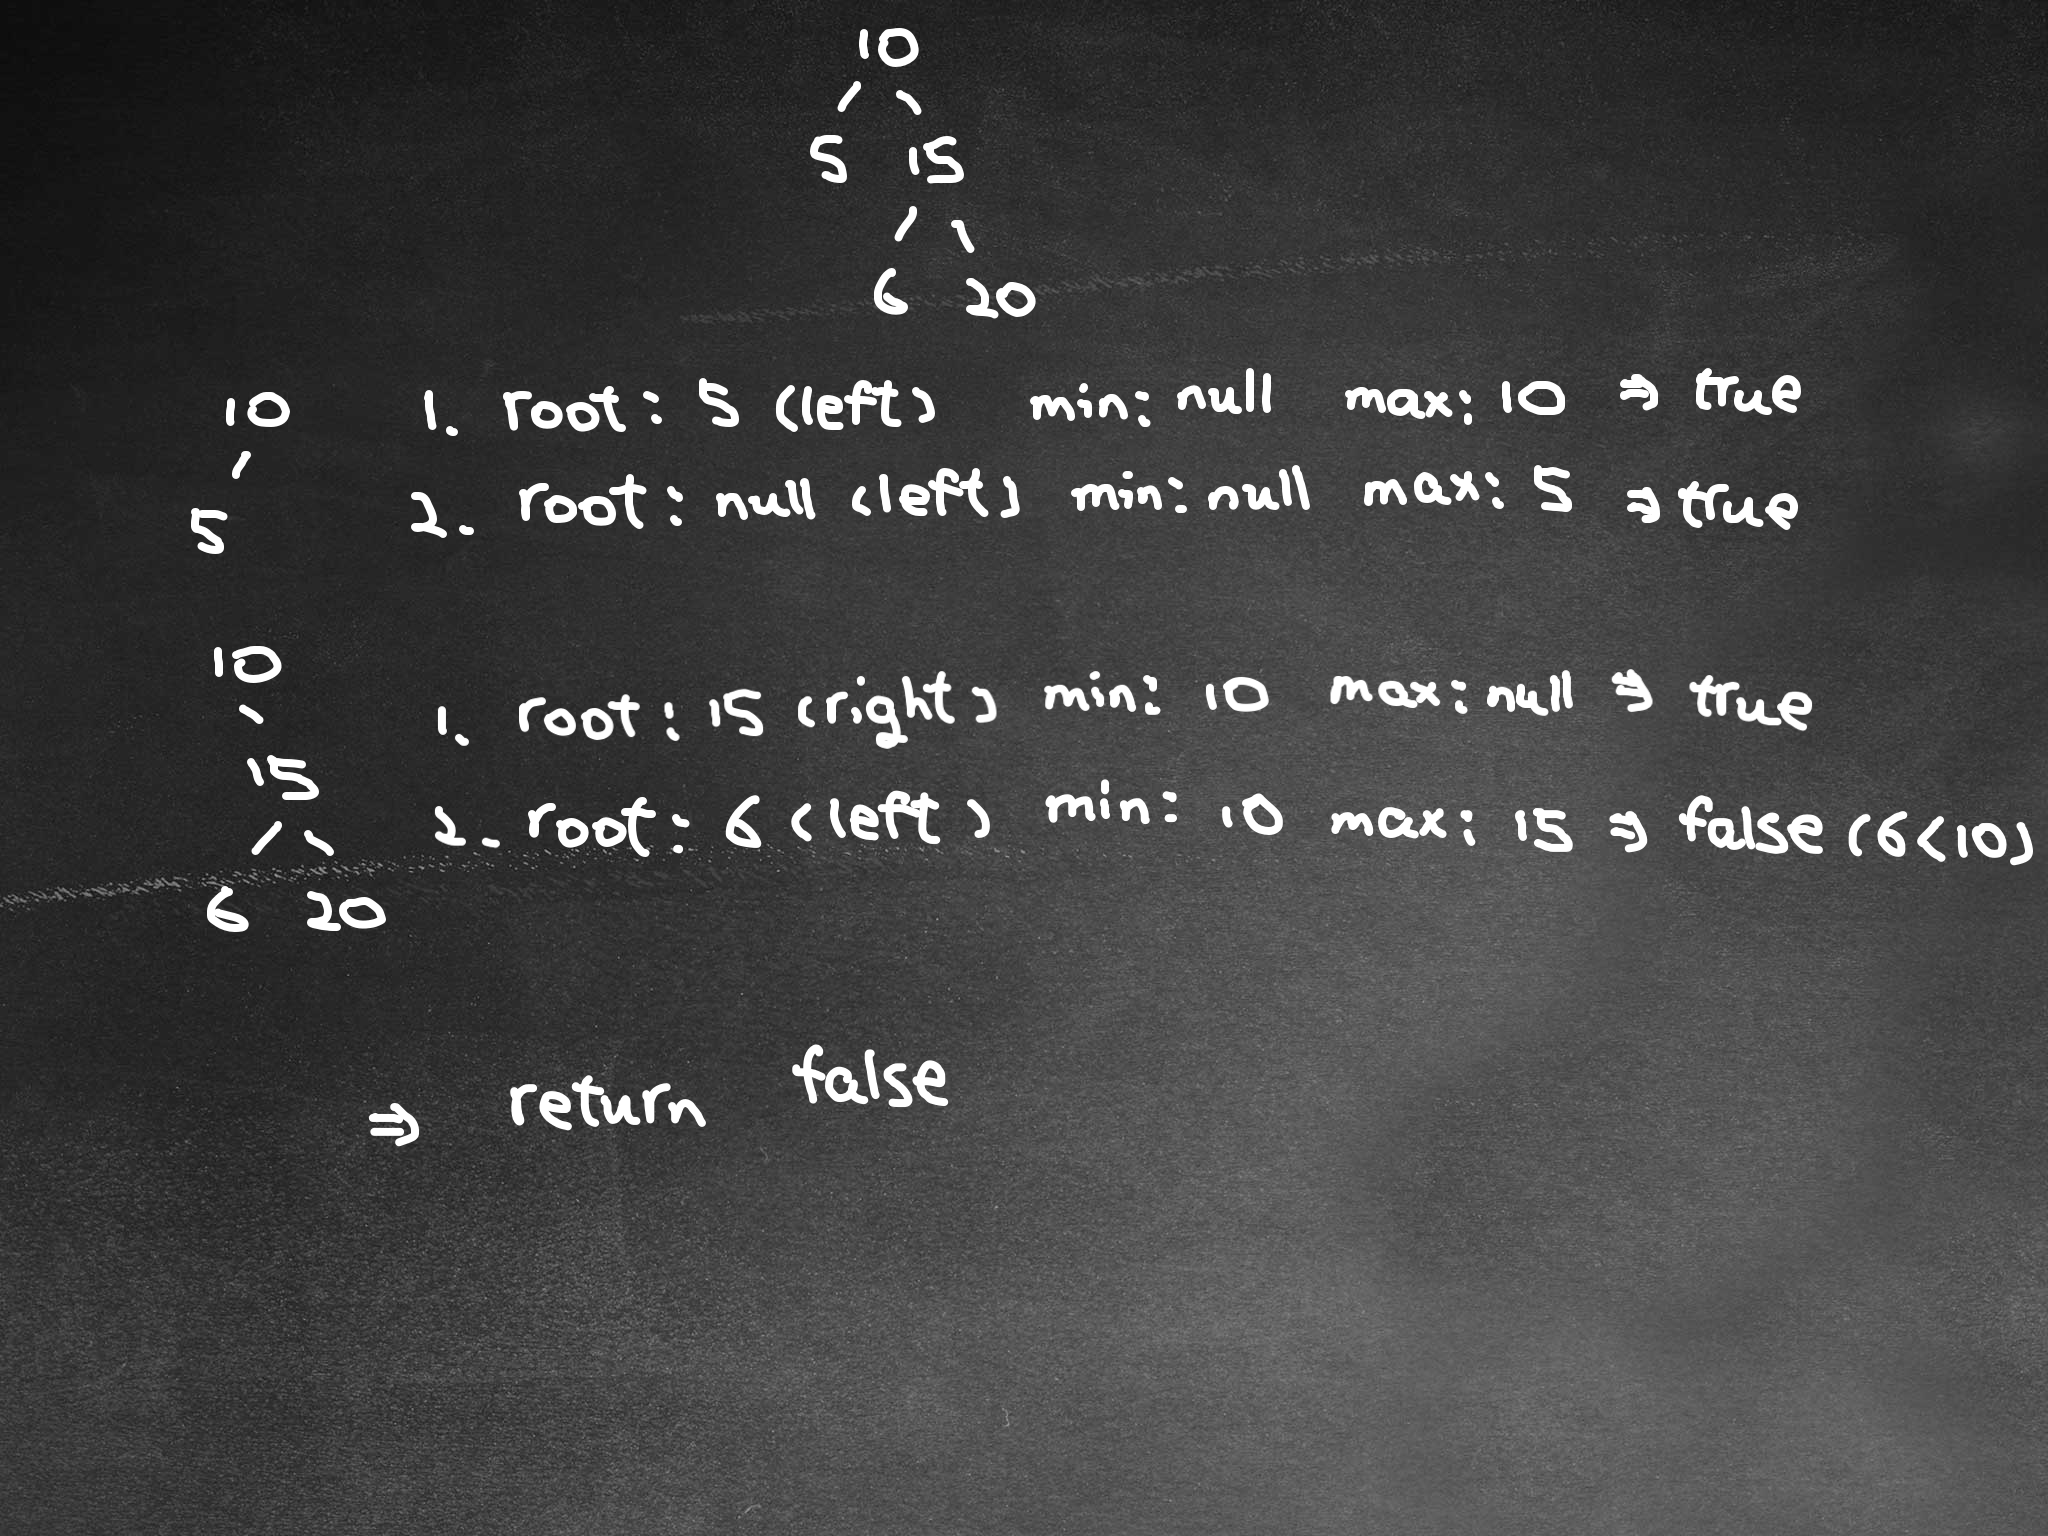 10
5 15
6 20
10
5
1. root: 5 (left) min: null max: 10 ⇒ true
2. root: null (left) min: null max: 5 ⇒ true
10
15
6 20
1. root: 15 (right) min: 10 max: null ⇒ true
2. root: 6 (left) min: 10 max: 15 ⇒ false (6<10)
⇒ return false